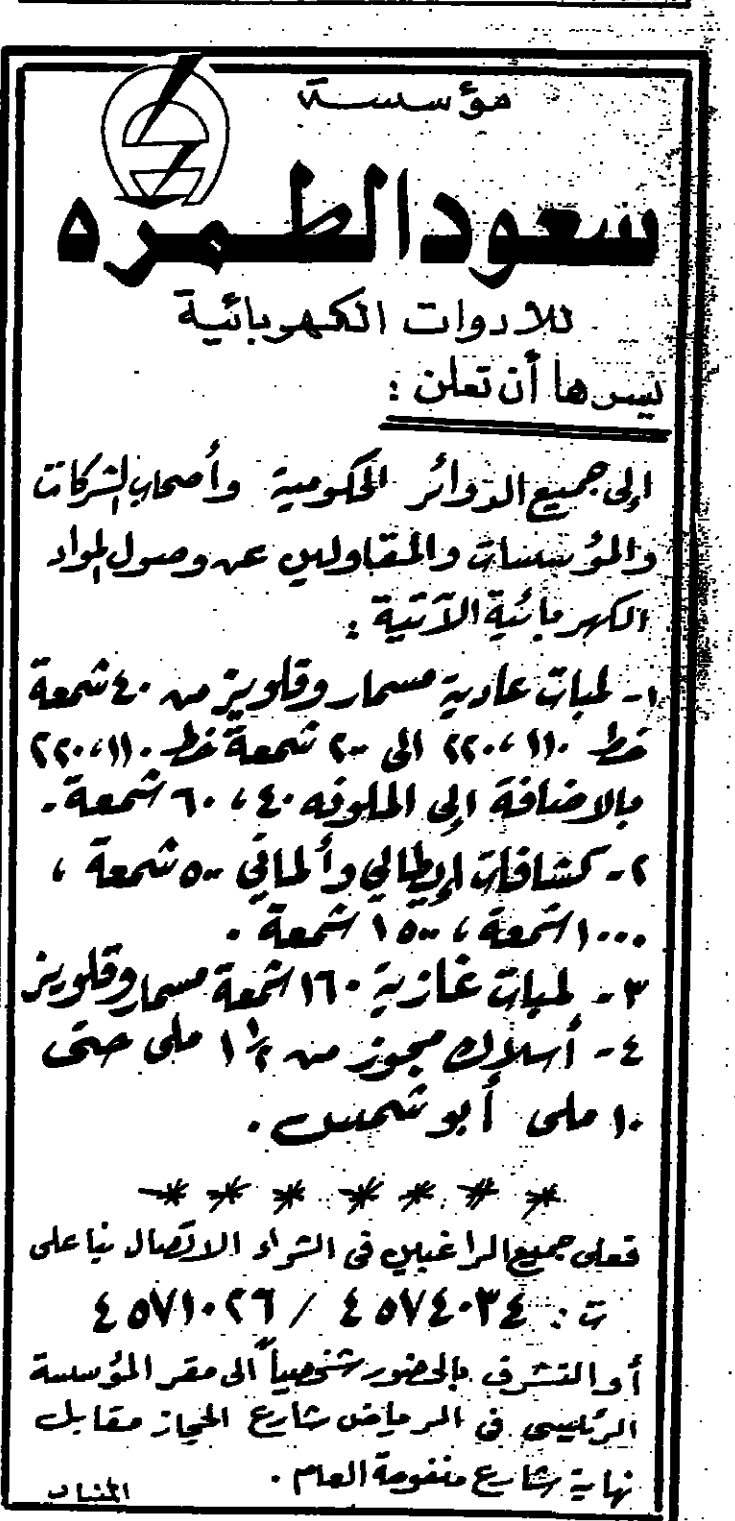 مؤسسة
سعود الطمره
للأدوات الكهربائية
يسرها أن تعلن :
إلى جميع الدوائر الحكومية وأصحاب الشركات
والمؤسسات والمقاولين عن وصول المواد
الكهربائية الآتية :
١- لمبات عادية مسمار وقلويز من ٤٠ شمعة
خط ١١٠، ٢٢٠ الى ٢٠٠ شمعة خط ١١٠، ٢٢٠
بالاضافة إلى الملونه ٤٠ ، ٦٠ شمعة -
٢- كشافات إيطالي وألماني ٥٠٠ شمعة ،
١٠٠٠ شمعة ، ١٥٠٠ شمعة .
٣- لمبات غازية ١٦٠ شمعة مسمار وقلويز
٤- أسلاك مجوز من ١ ١/٢ ملى حتى
١٠ ملى أبو شمس .
* * * * * * *
فعلى جميع الراغبين فى الشراء الاتصال بنا على
ت : ٤٥٧٤٠٣٤ / ٤٥٧١٠٢٦
أو التشرف بالحضور شخصياً الى مقر المؤسسة
الرئيسى فى الرياض شارع الحجاز مقابل
نهاية شارع منفوحة العام .